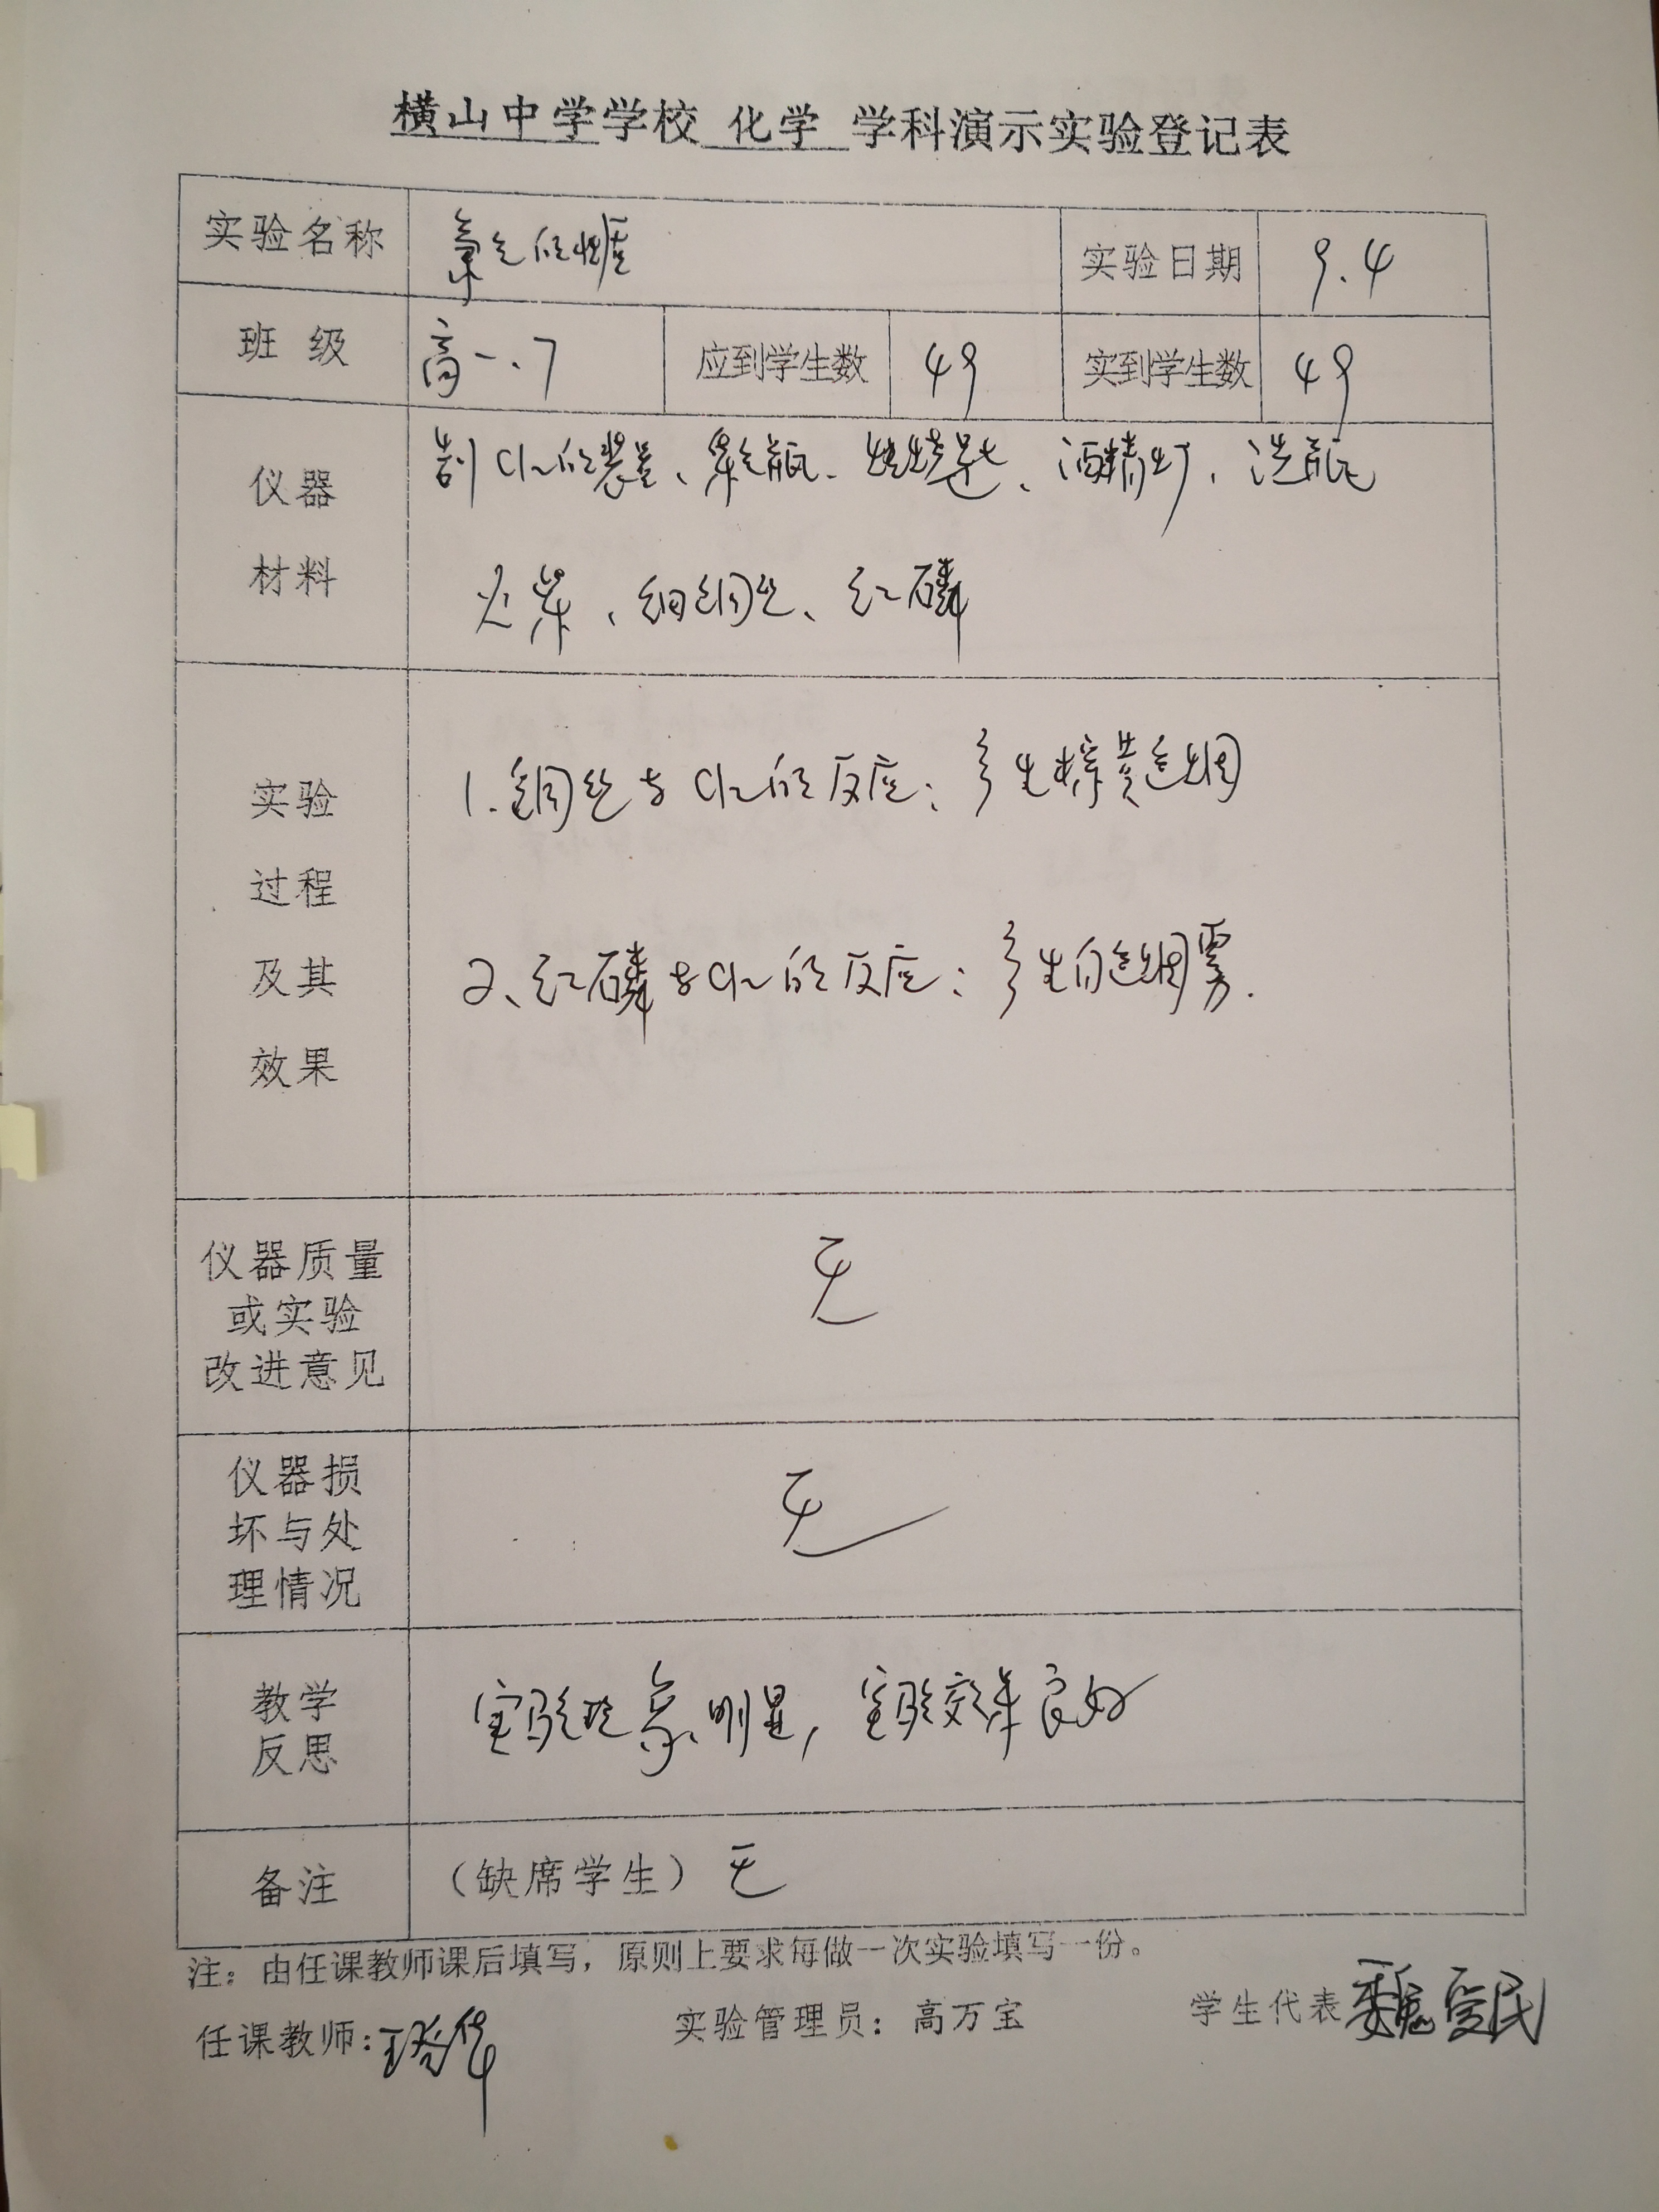 横山中学学校 化学 学科演示实验登记表
实验名称 氯气的性质 实验日期 9.4
班级 高一.7 应到学生数 49 实到学生数 49
仪器材料
制Cl₂的装置、集气瓶、燃烧匙、酒精灯、洗瓶
火柴、细铜丝、红磷
实验过程及其效果
1.铜丝与Cl₂的反应:产生棕黄色烟
2、红磷与Cl₂的反应:产生白色烟雾.
仪器质量或实验改进意见 无
仪器损坏与处理情况 无
教学反思 实验现象明显,实验效果良好
备注 (缺席学生) 无
注:由任课教师课后填写,原则上要求每做一次实验填写一份。
任课教师: 实验管理员:高万宝 学生代表 魏